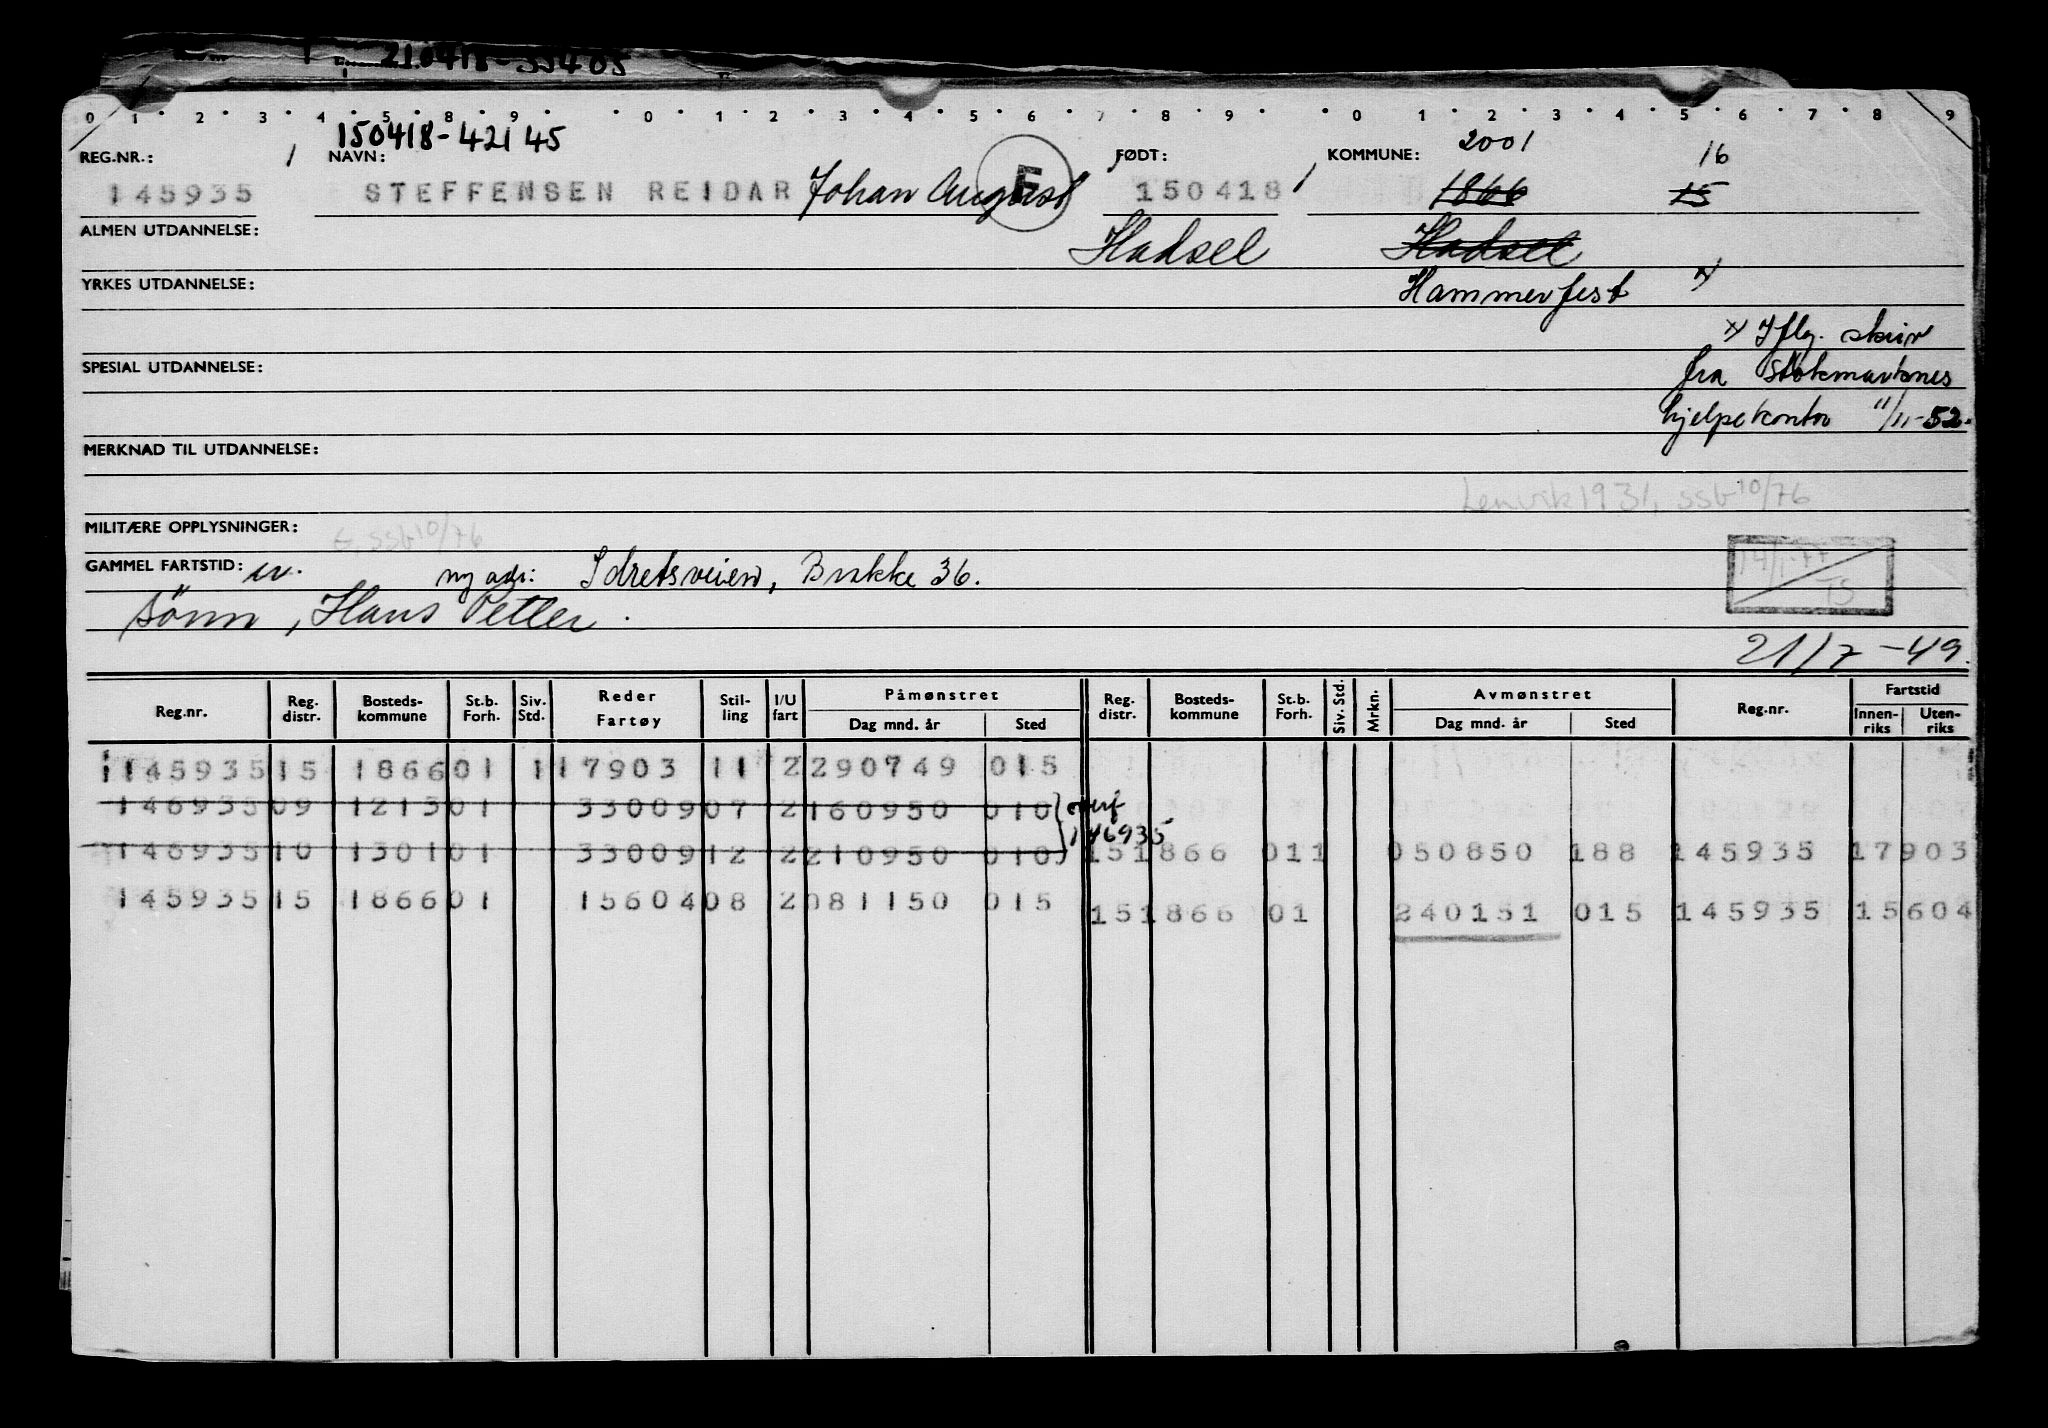 210418-55405
0 1 2 3 4 5 8 9 0 1 2 3 4 5 6 7 8 9 0 1 2 3 4 5 6 7 8 9
150418-42145 2001
REG.NR.: 1 NAVN: FØDT: KOMMUNE: 16
145935 STEFFENSEN REIDAR Johan August E 150418 1 1866 15
ALMEN UTDANNELSE: Hadsel Hadsel
YRKES UTDANNELSE: Hammerfest x/
x/ Iflg. skriv
SPESIAL UTDANNELSE: fra Stokmarknes
hjelpekontor 11/11-52.
MERKNAD TIL UTDANNELSE:
Lenvik 1931, ssb 10/76
MILITÆRE OPPLYSNINGER: E, ssb 10/76
14/1-77
GAMMEL FARTSTID: ny adr: Idretsveien, Brakke 36.
TS
sønn, Hans Petter.
21/7-49.
Reg.nr. Reg. distr. Bosteds-kommune St.b. Forh. Siv. Std. Reder Fartøy Stil-ling I/U fart Påmønstret Dag mnd. år Sted Reg. distr. Bosteds-kommune St.b. Forh. Siv. Std. Mrkn. Avmønstret Dag mnd. år Sted Reg.nr. Fartstid Innen-riks Uten-riks
145935 15 1866 01 1 17903 11 2 290749 015
146935 09 1213 01 33009 07 2 160950 010 overf
146935
146935 10 1301 01 33009 12 2 210950 010 15 1866 01 1 050850 188 145935 17903
145935 15 1866 01 15604 08 2 081150 015 15 1866 01 240151 015 145935 15604